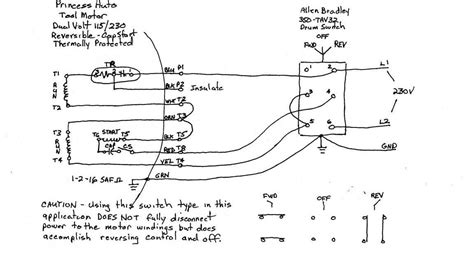 Princess Auto
Tool Motor
Dual Volt 115/230
Reversible - CapStart
Thermally Protected
Allen Bradley
350-TAV32
Drum Switch
OFF
FWD
REV
TP
BLU P1
T1
RUN
BLK P2
Insulate
T2
WHT T2
T3
ORN T3
RUN
T6 START T5
BLK T5
CAP CS
RED T8
T4
YEL T4
GRN
1-2-16 SAF
1 2
3 4
5 6
L1
230V
L2
GND
CAUTION - Using this switch type in this
application DOES NOT fully disconnect
power to the motor windings but does
accomplish reversing control and off.
FWD
OFF
REV